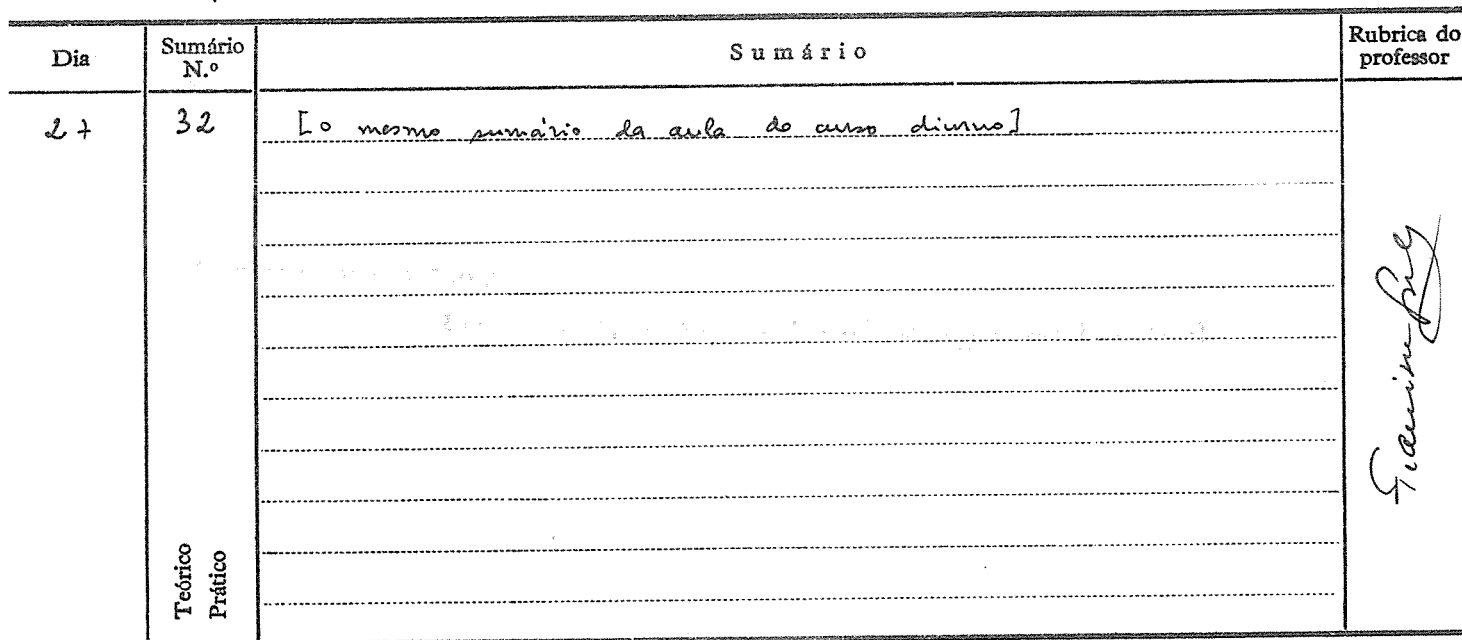 Dia
Sumário N.º
Sumário
Rubrica do professor
27
32
[o mesmo sumário da aula do curso diurno]
Teórico
Prático